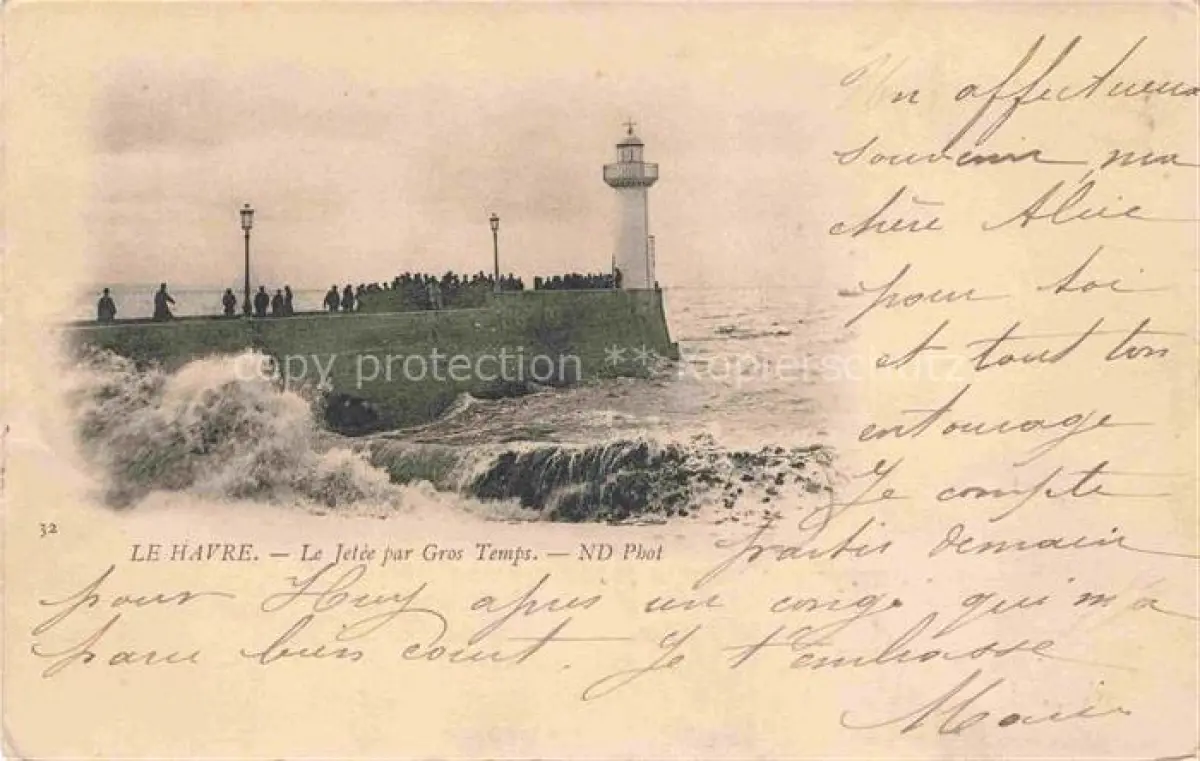 Un affectueux
souvenir ma
chère Alice
pour toi
et tout ton
entourage
Je compte
partir demain
pour Huy après un congé qui m'a
paru bien court. Je t'embrasse
Marie
copy protection ** Kopierschutz
32
LE HAVRE. — La Jetée par Gros Temps. — ND Phot